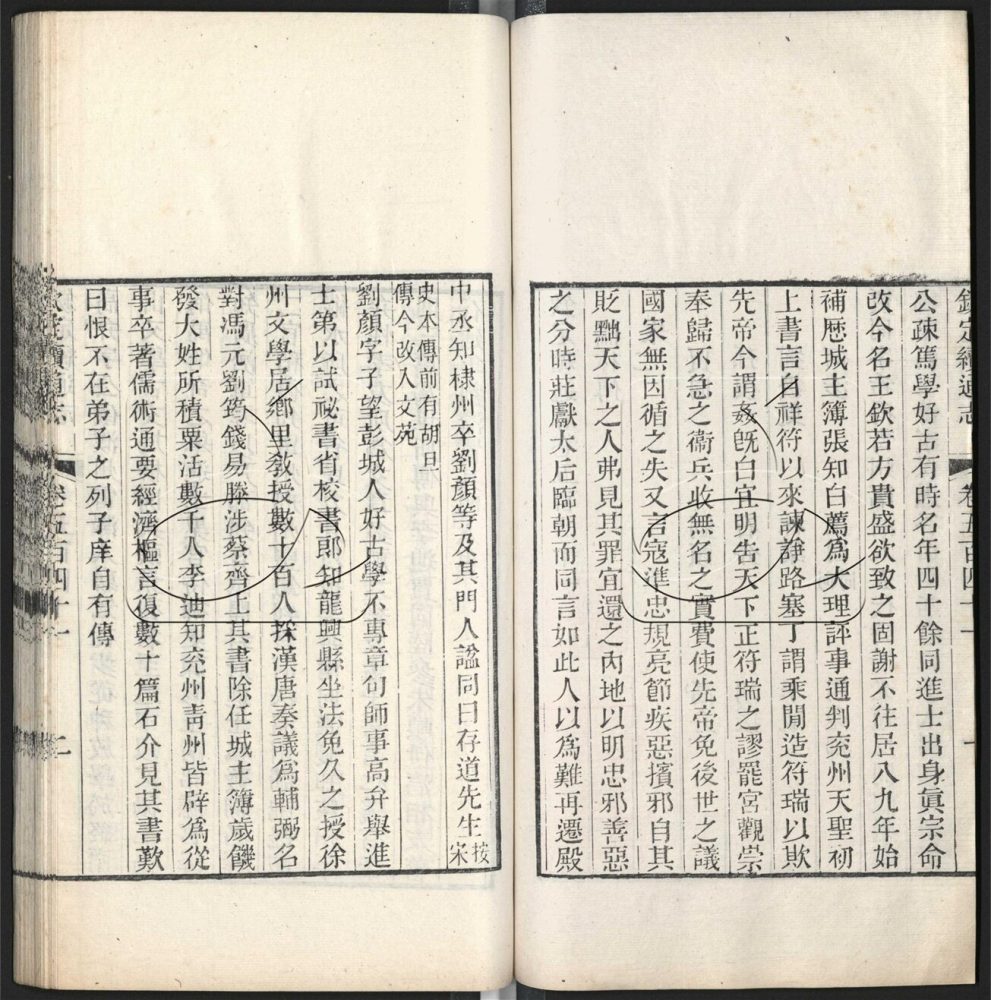 欽定續通志 卷五百四十一 一
公疎篤學好古有時名年四十餘同進士出身眞宗命
改今名王欽若方貴盛欲致之固謝不往居八九年始
補歷城主簿張知白薦爲大理評事通判兖州天聖初
上書言自祥符以來諫諍路塞丁謂乘閒造符瑞以欺
先帝今謂姦旣白宜明告天下正符瑞之謬罷宮觀崇
奉歸不急之衞兵收無名之實費使先帝免後世之議
國家無因循之失又言寇準忠規亮節疾惡擯邪自其
貶黜天下之人弗見其罪宜還之內地以明忠邪善惡
之分時莊獻太后臨朝而同言如此人以爲難再遷殿
中丞知棣州卒劉顏等及其門人諡同曰存道先生按宋
史本傳前有胡旦
傳今改入文苑
劉顏字子望彭城人好古學不專章句師事高弁舉進
士第以試祕書省校書郎知龍興縣坐法免久之授徐
州文學居鄉里敎授數十百人採漢唐奏議爲輔弼名
對馮元劉筠錢易滕涉蔡齊上其書除任城主簿歲饑
發大姓所積粟活數千人李迪知兖州靑州皆辟爲從
事卒著儒術通要經濟樞言復數十篇石介見其書歎
曰恨不在弟子之列子庠自有傳
欽定續通志 卷五百四十一 二